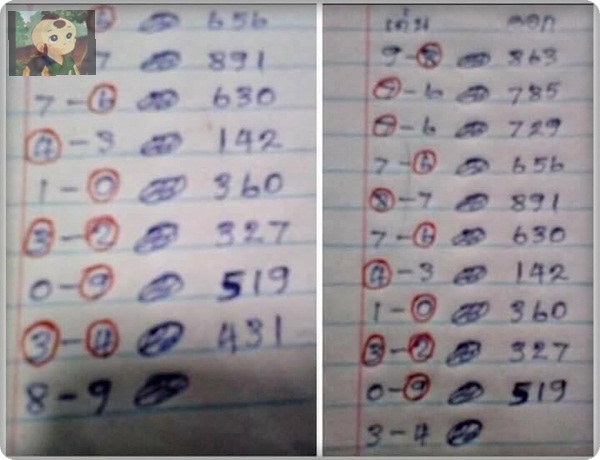 6 656
7 891
7-6 630
4-3 142
1-0 360
3-2 327
0-9 519
3-4 431
8-9
เด่น ออก
9-8 863
7-6 785
7-6 729
7-6 656
8-7 891
7-6 630
4-3 142
1-0 360
3-2 327
0-9 519
3-4